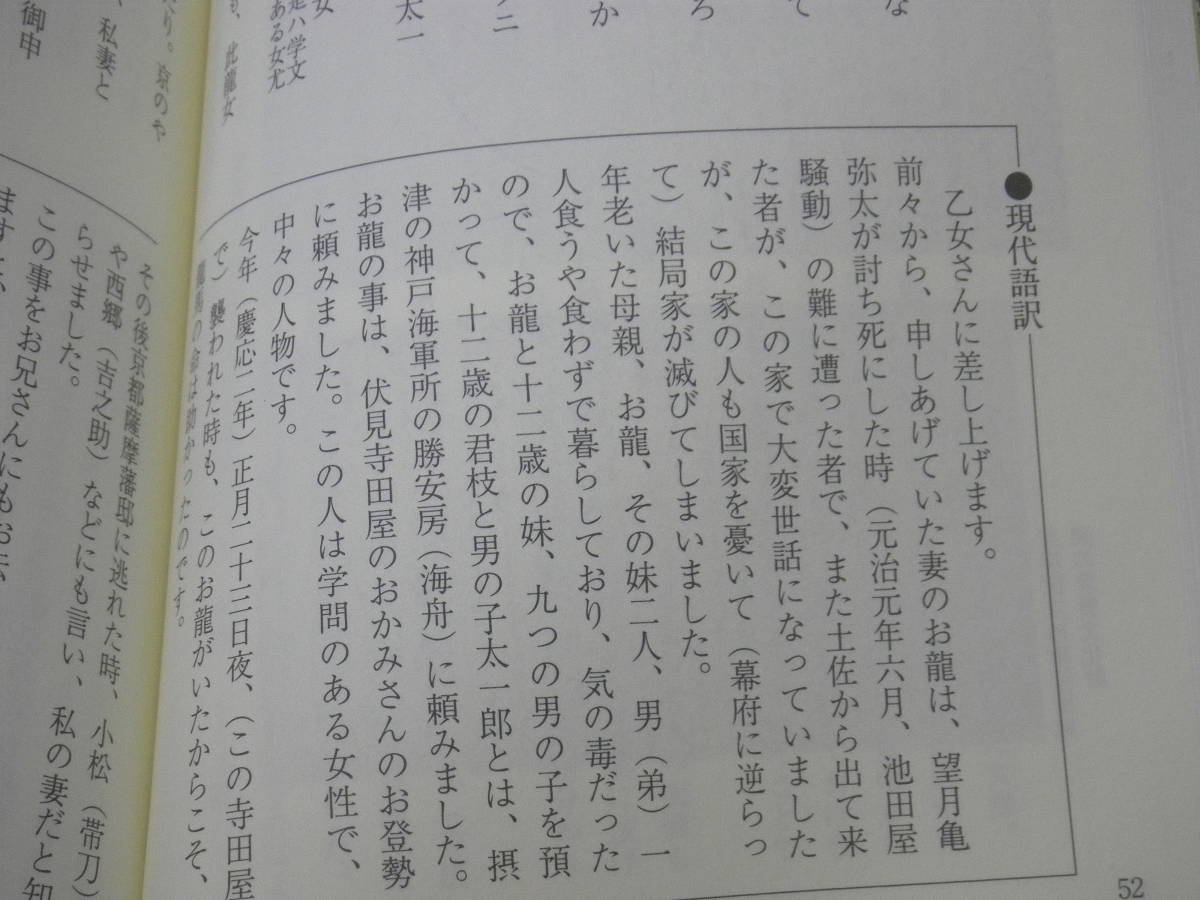 な
て
ろ
か
ニ
太一
女
是ハ学文
ある女尤
も、此龍女
たり。京のや
、私妻と
御申
●現代語訳
乙女さんに差し上げます。
前々から、申しあげていた妻のお龍は、望月亀
弥太が討ち死にした時（元治元年六月、池田屋
騒動）の難に遭った者で、また土佐から出て来
た者が、この家で大変世話になっていました
が、この家の人も国家を憂いて（幕府に逆らっ
て）結局家が滅びてしまいました。
年老いた母親、お龍、その妹二人、男（弟）一
人食うや食わずで暮らしており、気の毒だった
ので、お龍と十二歳の妹、九つの男の子を預
かって、十二歳の君枝と男の子太一郎とは、摂
津の神戸海軍所の勝安房（海舟）に頼みました。
お龍の事は、伏見寺田屋のおかみさんのお登勢
に頼みました。この人は学問のある女性で、
中々の人物です。
今年（慶応二年）正月二十三日夜、（この寺田屋
で）襲われた時も、このお龍がいたからこそ、
龍馬の命は助かったのです。
その後京都薩摩藩邸に逃れた時、小松（帯刀）
や西郷（吉之助）などにも言い、私の妻だと知
らせました。
この事をお兄さんにもお伝
52